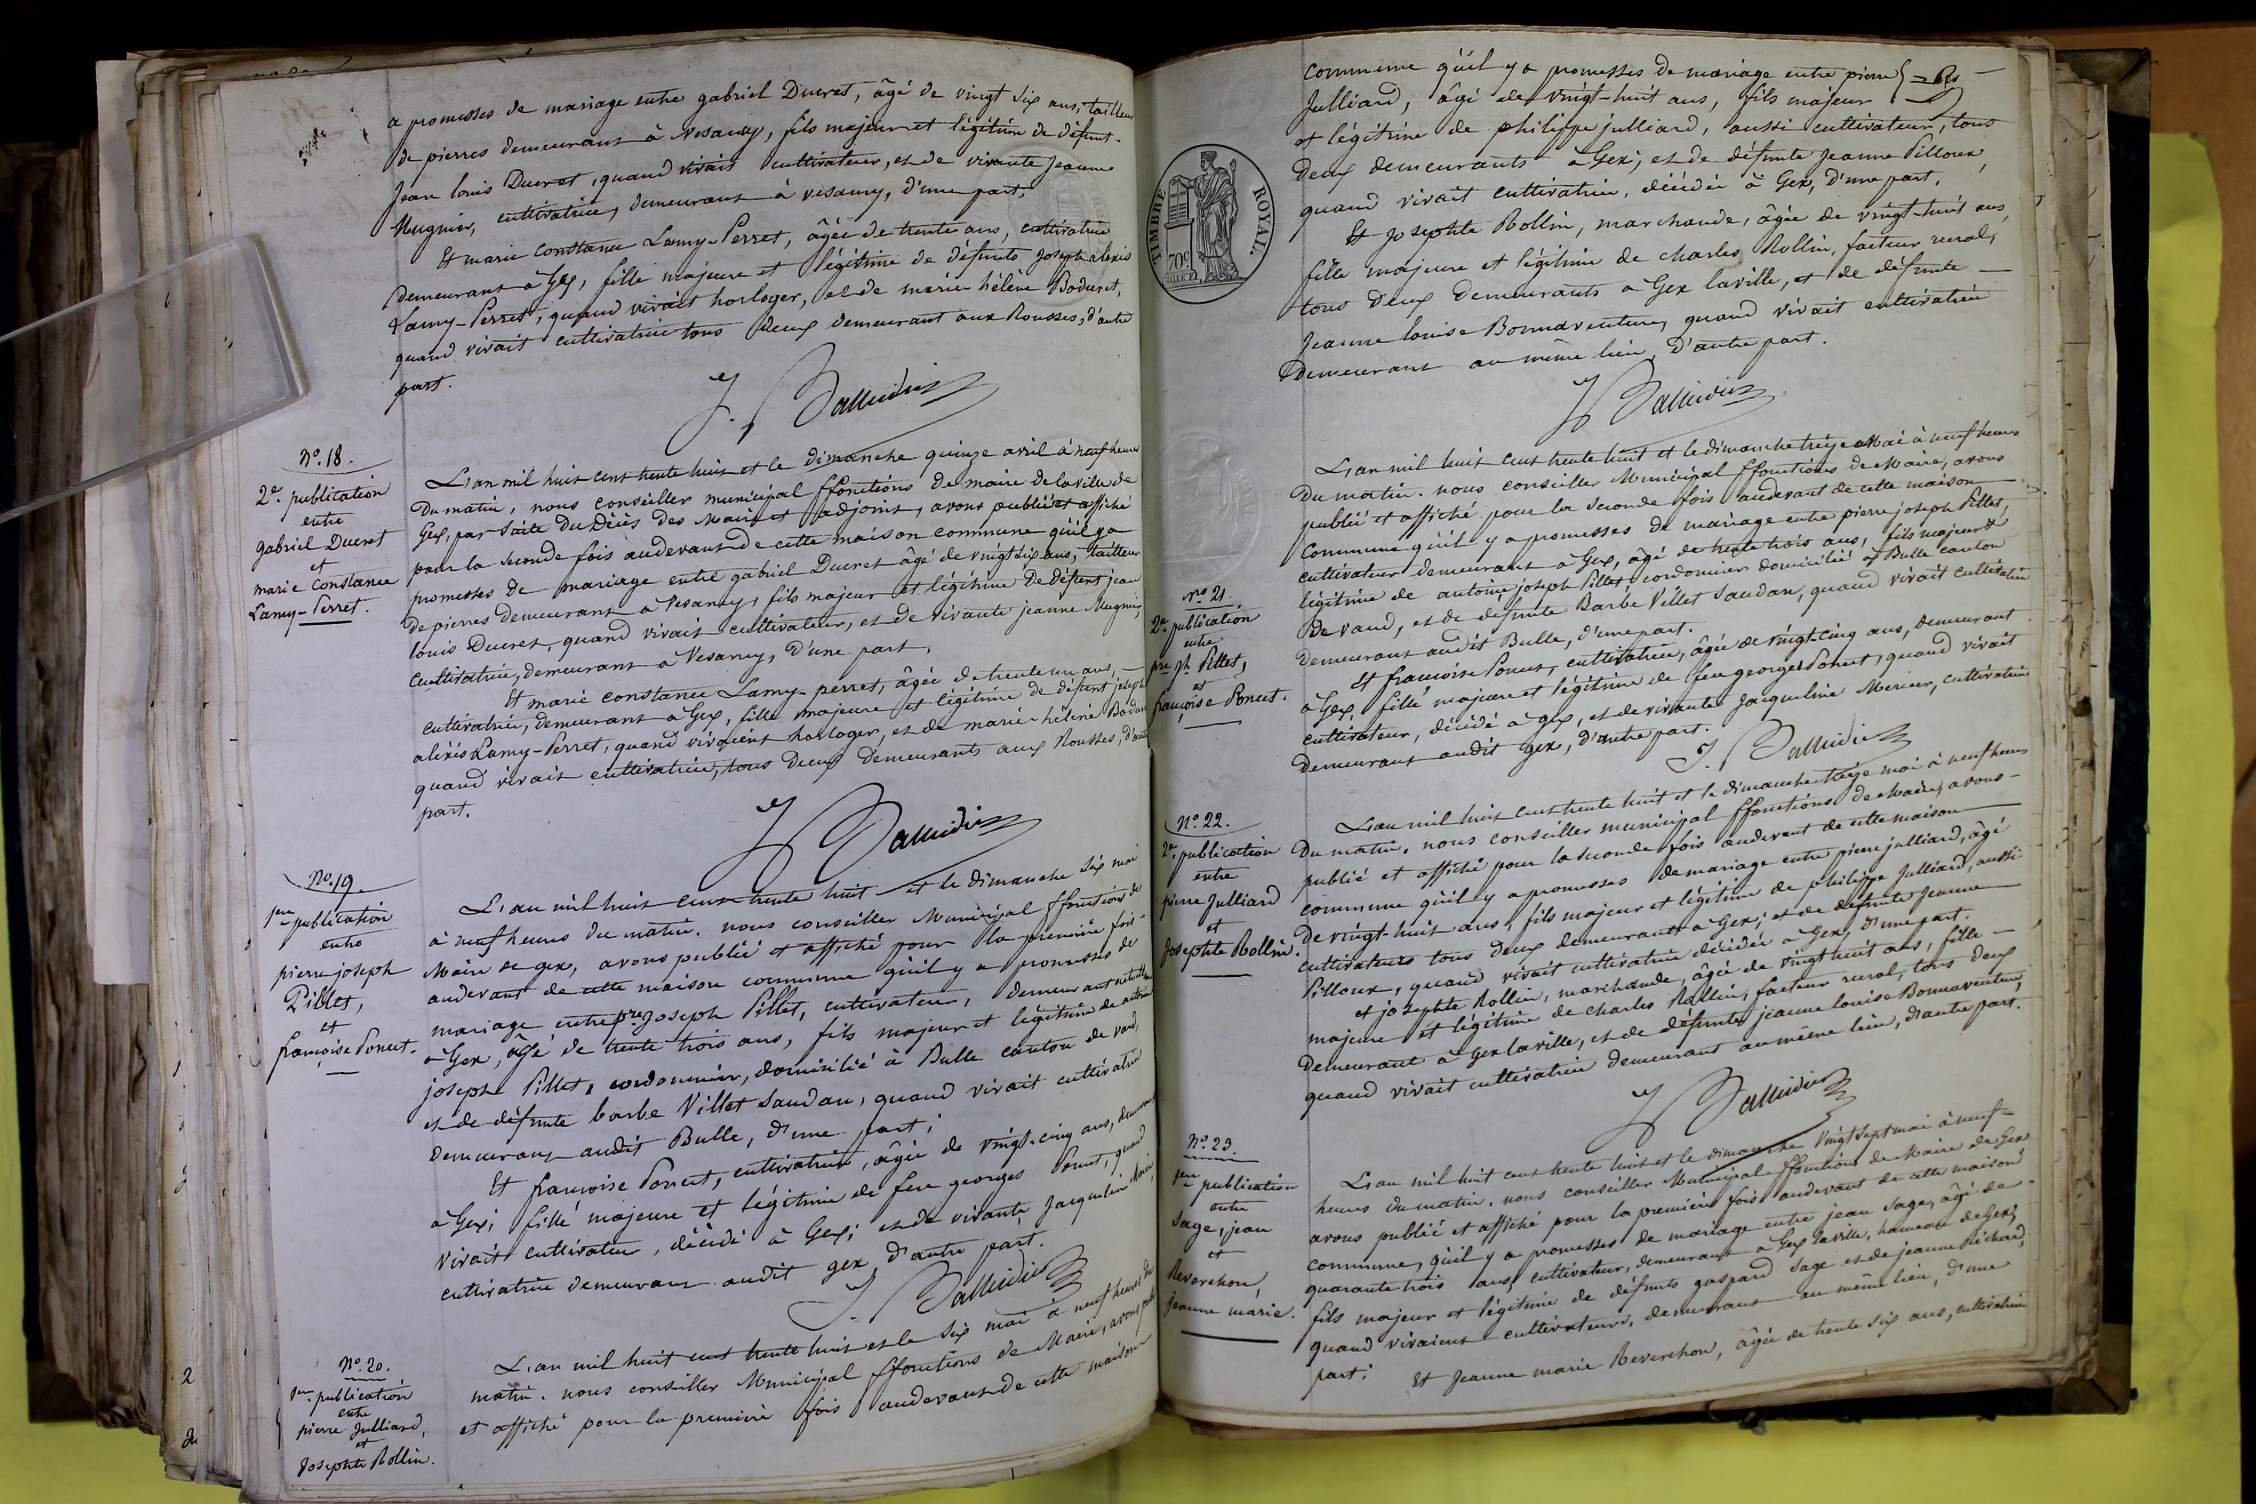 a promesses de mariage entre gabriel Ducret, âgé de vingt six ans, tailleur
de pierres demeurant à Vesancy, fils majeur et légitime de défunt
Jean louis Ducret, quand vivait cultivateur, et de vivante Jeanne
Mugnier, cultivatrice, demeurant à vesancy, d'une part;
Et marie constance Lamy-Perret, âgée de trente ans, cultivatrice
demeurant à Gex, fille majeure et légitime de défunts Joseph alexis
Lamy-Perret, quand vivait horloger, et de marie hélène Boduret,
quand vivait cultivatrice tous deux demeurant aux Rousses, d'autre
part.
No. 18.
2e. publication
entre
gabriel Ducret
et
marie constance
Lamy-Perret.
L'an mil huit cent trente huit et le dimanche quinze avril à neuf heures
du matin, nous conseiller municipal ffonctions de maire de la ville de
Gex, par suite du décès des Maire et adjoint, avons publié et affiché
pour la seconde fois audevant de cette maison commune qu'il y a
promesses de mariage entre gabriel Ducret âgé de vingt six ans, tailleur
de pierres demeurant à Vesancy, fils majeur et légitime de défunt jean
louis Ducret, quand vivait cultivateur, et de vivante jeanne Mugnier,
cultivatrice, demeurant à Vesancy, d'une part,
Et marie constance Lamy-perret, âgée de trente un ans,
cultivatrice, demeurant à Gex, fille majeure et légitime de défunt joseph
alexis Lamy-Perret, quand vivaient horloger, et de marie-hélène
quand vivait cultivatrice, tous deux demeurants aux Rousses, d'autre
part.
No. 19.
1ere publication
entre
pierre joseph
Pillet,
et
françoise Poncet.
L'an mil huit cent trente huit et le dimanche six mai
à neuf heures du matin. nous conseiller Municipal ffonctions de
Maire de gex, avons publié et affiché pour la première fois
audevant de cette maison commune qu'il y a promesses de
mariage entre pre. Joseph Pillet, cultivateur, demeurant
à Gex, âgé de trente trois ans, fils majeur et légitime de antoine
joseph Pillet, cordonnier, domicilié à Bulle canton de vaud,
et de défunte barbe Villet Saudan, quand vivait cultivatrice
demeurant audit Bulle, d'une part;
Et françoise Poncet, cultivatrice, âgée de vingt-cinq ans, demeurant
à Gex; fille majeure et légitime de feu georges Poncet, quand
vivait cultivateur, décédé à Gex; et de vivante Jacqueline
cultivatrice demeurant audit gex, d'autre part.
No. 20.
1ere publication
entre
pierre Julliard,
et
Josephte Rollin.
L'an mil huit cent trente huit et le six mai à neuf heures du
matin. nous conseiller Municipal ffonctions de Maire, avons publié
et affiché pour la première fois audevant de cette maison
TIMBRE ROYAL.
70c
commune qu'il y a promesses de mariage entre pierre
Julliard, âgé de vingt-huit ans, fils majeur
et légitime de philippe julliard, aussi cultivateur, tous
deux demeurants à Gex; et de défunte Jeanne Pilloux,
quand vivait cultivatrice, décédée à Gex, d'une part.
Et Josephte Rollin, marchande, âgée de vingt-huit ans,
fille majeure et légitime de charles Rollin, facteur rural,
tous deux demeurants à Gex laville, et de défunte
Jeanne louise Bonnaventure, quand vivait cultivatrice
demeurant au même lieu, d'autre part.
No. 21.
2e. publication
entre
pre. jh. Pillet,
et
françoise Poncet.
L'an mil huit cent trente huit et le dimanche treize Mai à neuf heures
du matin. nous conseiller Municipal ffonctions de Maire, avons
publié et affiché pour la seconde fois audevant de cette maison
commune qu'il y a promesses de mariage entre pierre joseph Pillet,
cultivateur demeurant à Gex, âgé de trente trois ans, fils majeur et
légitime de antoine joseph Pillet cordonnier domicilié à Bulle canton
de vaud, et de défunte Barbe Villet Saudan, quand vivait cultivatrice
demeurant audit Bulle, d'une part.
Et françoise Poncet, cultivatrice, âgée de vingt-cinq ans, demeurant
à Gex, fille majeure et légitime de feu georges Poncet, quand vivait
cultivateur, décédé à gex, et de vivante Jacqueline Mercier, cultivatrice
demeurant audit gex, d'autre part.
No. 22.
2e. publication
entre
pierre Julliard
et
Josephte Rollin.
L'an mil huit cent trente huit et le dimanche treize mai à neuf heures
du matin. nous conseiller municipal ffonctions de Maire, avons
publié et affiché pour la seconde fois audevant de cette maison
commune qu'il y a promesses de mariage entre pierre julliard, âgé
de vingt-huit ans, fils majeur et légitime de philippe Julliard, aussi
cultivateurs tous deux demeurant à Gex; et de défunte Jeanne
Pilloux, quand vivait cultivatrice décédée à Gex, d'une part.
et josephte Rollin, marchande, âgée de vingt huit ans, fille
majeure et légitime de charles Rollin, facteur rural, tous deux
demeurant à Gex laville, et de défunte jeanne louise Bonnaventure,
quand vivait cultivatrice demeurant au même lieu, d'autre part.
No. 23.
1ere publication
entre
Sage, jean
et
Reverchon,
jeanne marie.
L'an mil huit cent trente huit et le dimanche vingt sept mai à neuf
heures du matin. nous conseiller Municipal ffonctions de Maire de Gex
avons publié et affiché pour la première fois audevant de cette maison
commune, qu'il y a promesses de mariage entre jean Sage, âgé de
quarante trois ans, cultivateur, demeurant à Gex laville, hameau de Gex;
fils majeur et légitime de défunts gaspard Sage et de jeanne Péchard,
quand vivaient cultivateurs, demeurant au même lieu, d'une
part;
Et Jeanne marie Reverchon, âgée de trente six ans, cultivatrice